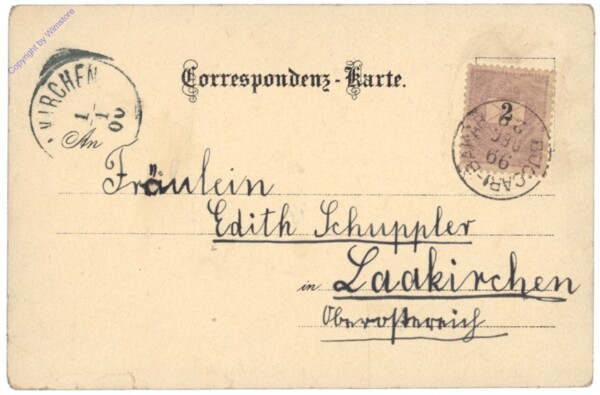 Copyright by Wimstore
Correspondenz-Karte.
KIRCHEN
1
1
00
2
BUCCARI-BAKAR
29
DEC
99
An
Fräulein
Edith Schuppler
in Laakirchen
Oberösterreich